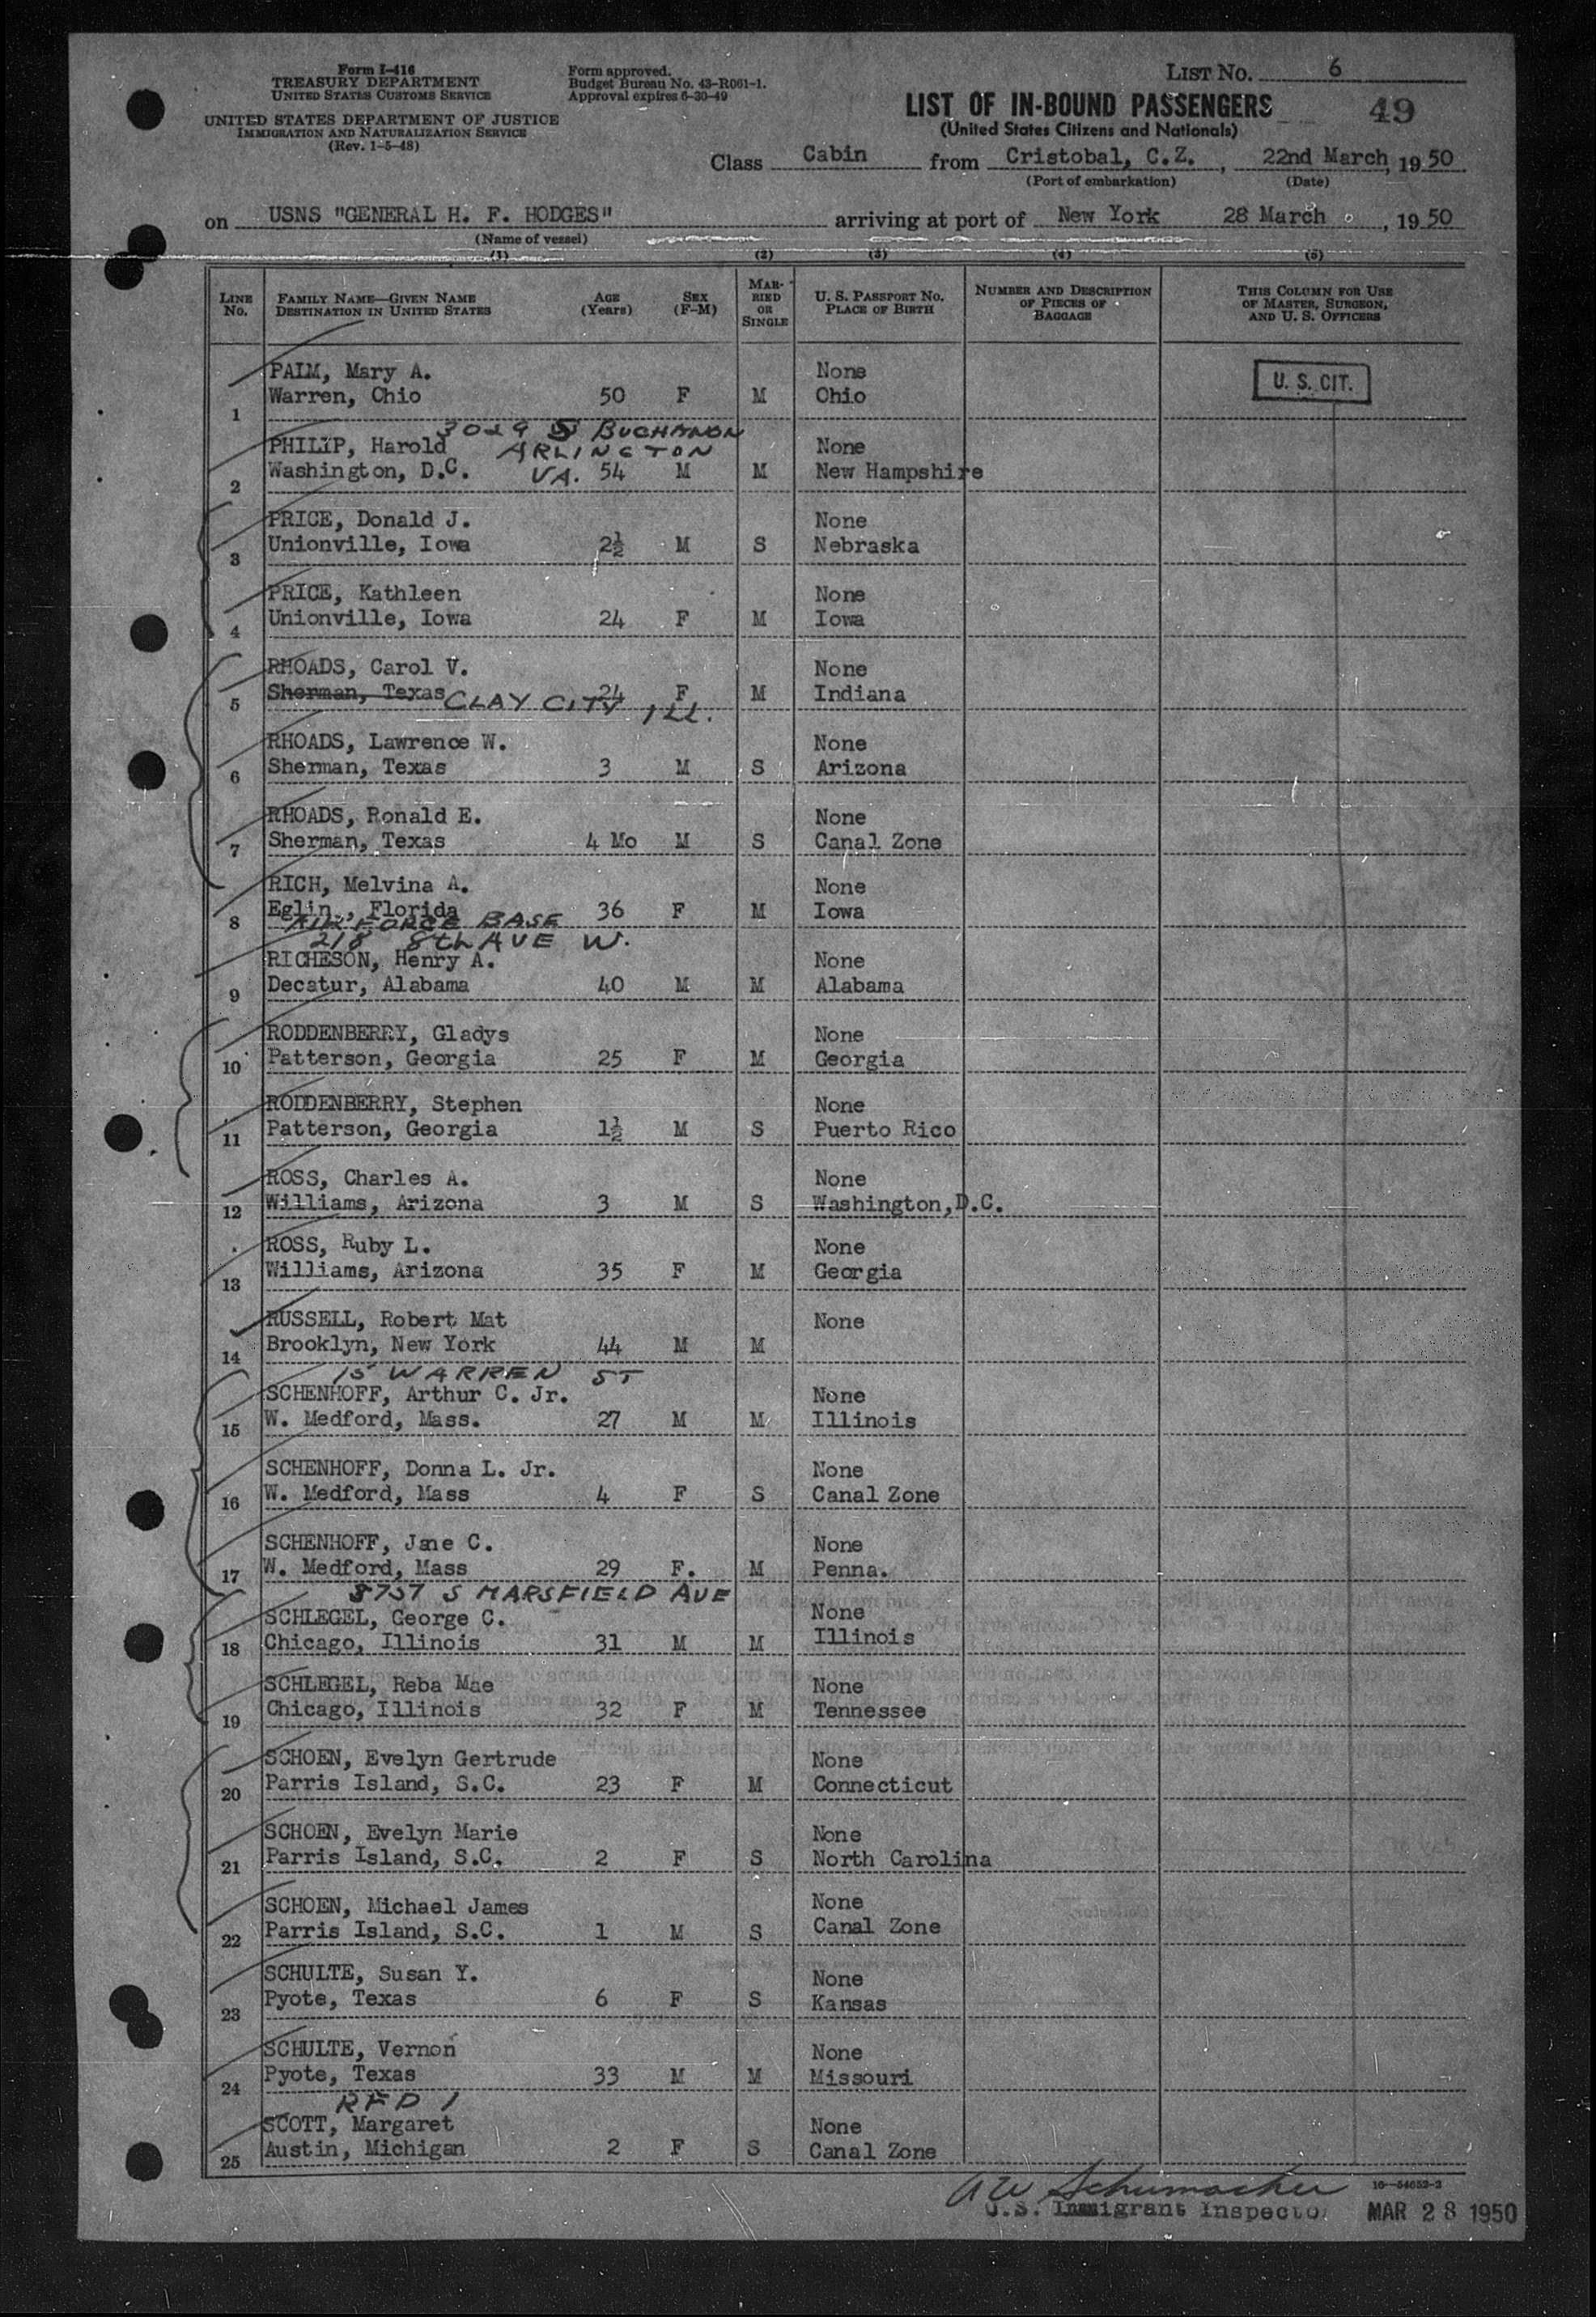 Form I-416
TREASURY DEPARTMENT
UNITED STATES CUSTOMS SERVICE
UNITED STATES DEPARTMENT OF JUSTICE
IMMIGRATION AND NATURALIZATION SERVICE
(Rev. 1-5-48)
Form approved.
Budget Bureau No. 43-R061-1.
Approval expires 6-30-49
LIST No. 6
LIST OF IN-BOUND PASSENGERS 49
(United States Citizens and Nationals)
Class Cabin from Cristobal, C.Z., 22nd March, 1950
(Port of embarkation) (Date)
on USNS "GENERAL H. F. HODGES" arriving at port of New York 28 March, 1950
(Name of vessel)
(1) (2) (3) (4) (5)
LINE No. FAMILY NAME—GIVEN NAME DESTINATION IN UNITED STATES AGE (Years) SEX (F-M) MARRIED OR SINGLE U. S. PASSPORT NO. PLACE OF BIRTH NUMBER AND DESCRIPTION OF PIECES OF BAGGAGE THIS COLUMN FOR USE OF MASTER, SURGEON, AND U. S. OFFICERS
PALM, Mary A. None U. S. CIT.
1 Warren, Ohio 50 F M Ohio
3029 S BUCHANON
PHILIP, Harold ARLINGTON None
2 Washington, D.C. VA. 54 M M New Hampshire
PRICE, Donald J. None
3 Unionville, Iowa 2½ M S Nebraska
PRICE, Kathleen None
4 Unionville, Iowa 24 F M Iowa
RHOADS, Carol V. None
5 Sherman, Texas 24 F M Indiana
CLAY CITY, ILL.
RHOADS, Lawrence W. None
6 Sherman, Texas 3 M S Arizona
RHOADS, Ronald E. None
7 Sherman, Texas 4 Mo M S Canal Zone
RICH, Melvina A. None
8 Eglin, Florida 36 F M Iowa
AIR FORCE BASE
218 8th AVE W.
RICHESON, Henry A. None
9 Decatur, Alabama 40 M M Alabama
RODDENBERRY, Gladys None
10 Patterson, Georgia 25 F M Georgia
RODDENBERRY, Stephen None
11 Patterson, Georgia 1½ M S Puerto Rico
ROSS, Charles A. None
12 Williams, Arizona 3 M S Washington, D.C.
ROSS, Ruby L. None
13 Williams, Arizona 35 F M Georgia
RUSSELL, Robert Mat None
14 Brooklyn, New York 44 M M
15 WARREN ST
SCHENHOFF, Arthur C. Jr. None
15 W. Medford, Mass. 27 M M Illinois
SCHENHOFF, Donna L. Jr. None
16 W. Medford, Mass 4 F S Canal Zone
SCHENHOFF, Jane C. None
17 W. Medford, Mass 29 F. M Penna.
8757 S MARSFIELD AVE
SCHLEGEL, George C. None
18 Chicago, Illinois 31 M M Illinois
SCHLEGEL, Reba Mae None
19 Chicago, Illinois 32 F M Tennessee
SCHOEN, Evelyn Gertrude None
20 Parris Island, S.C. 23 F M Connecticut
SCHOEN, Evelyn Marie None
21 Parris Island, S.C. 2 F S North Carolina
SCHOEN, Michael James None
22 Parris Island, S.C. 1 M S Canal Zone
SCHULTE, Susan Y. None
23 Pyote, Texas 6 F S Kansas
SCHULTE, Vernon None
24 Pyote, Texas 33 M M Missouri
RFD 1
SCOTT, Margaret None
25 Austin, Michigan 2 F S Canal Zone
A W Schumacher 16-54652-2
U.S. Immigrant Inspector MAR 28 1950